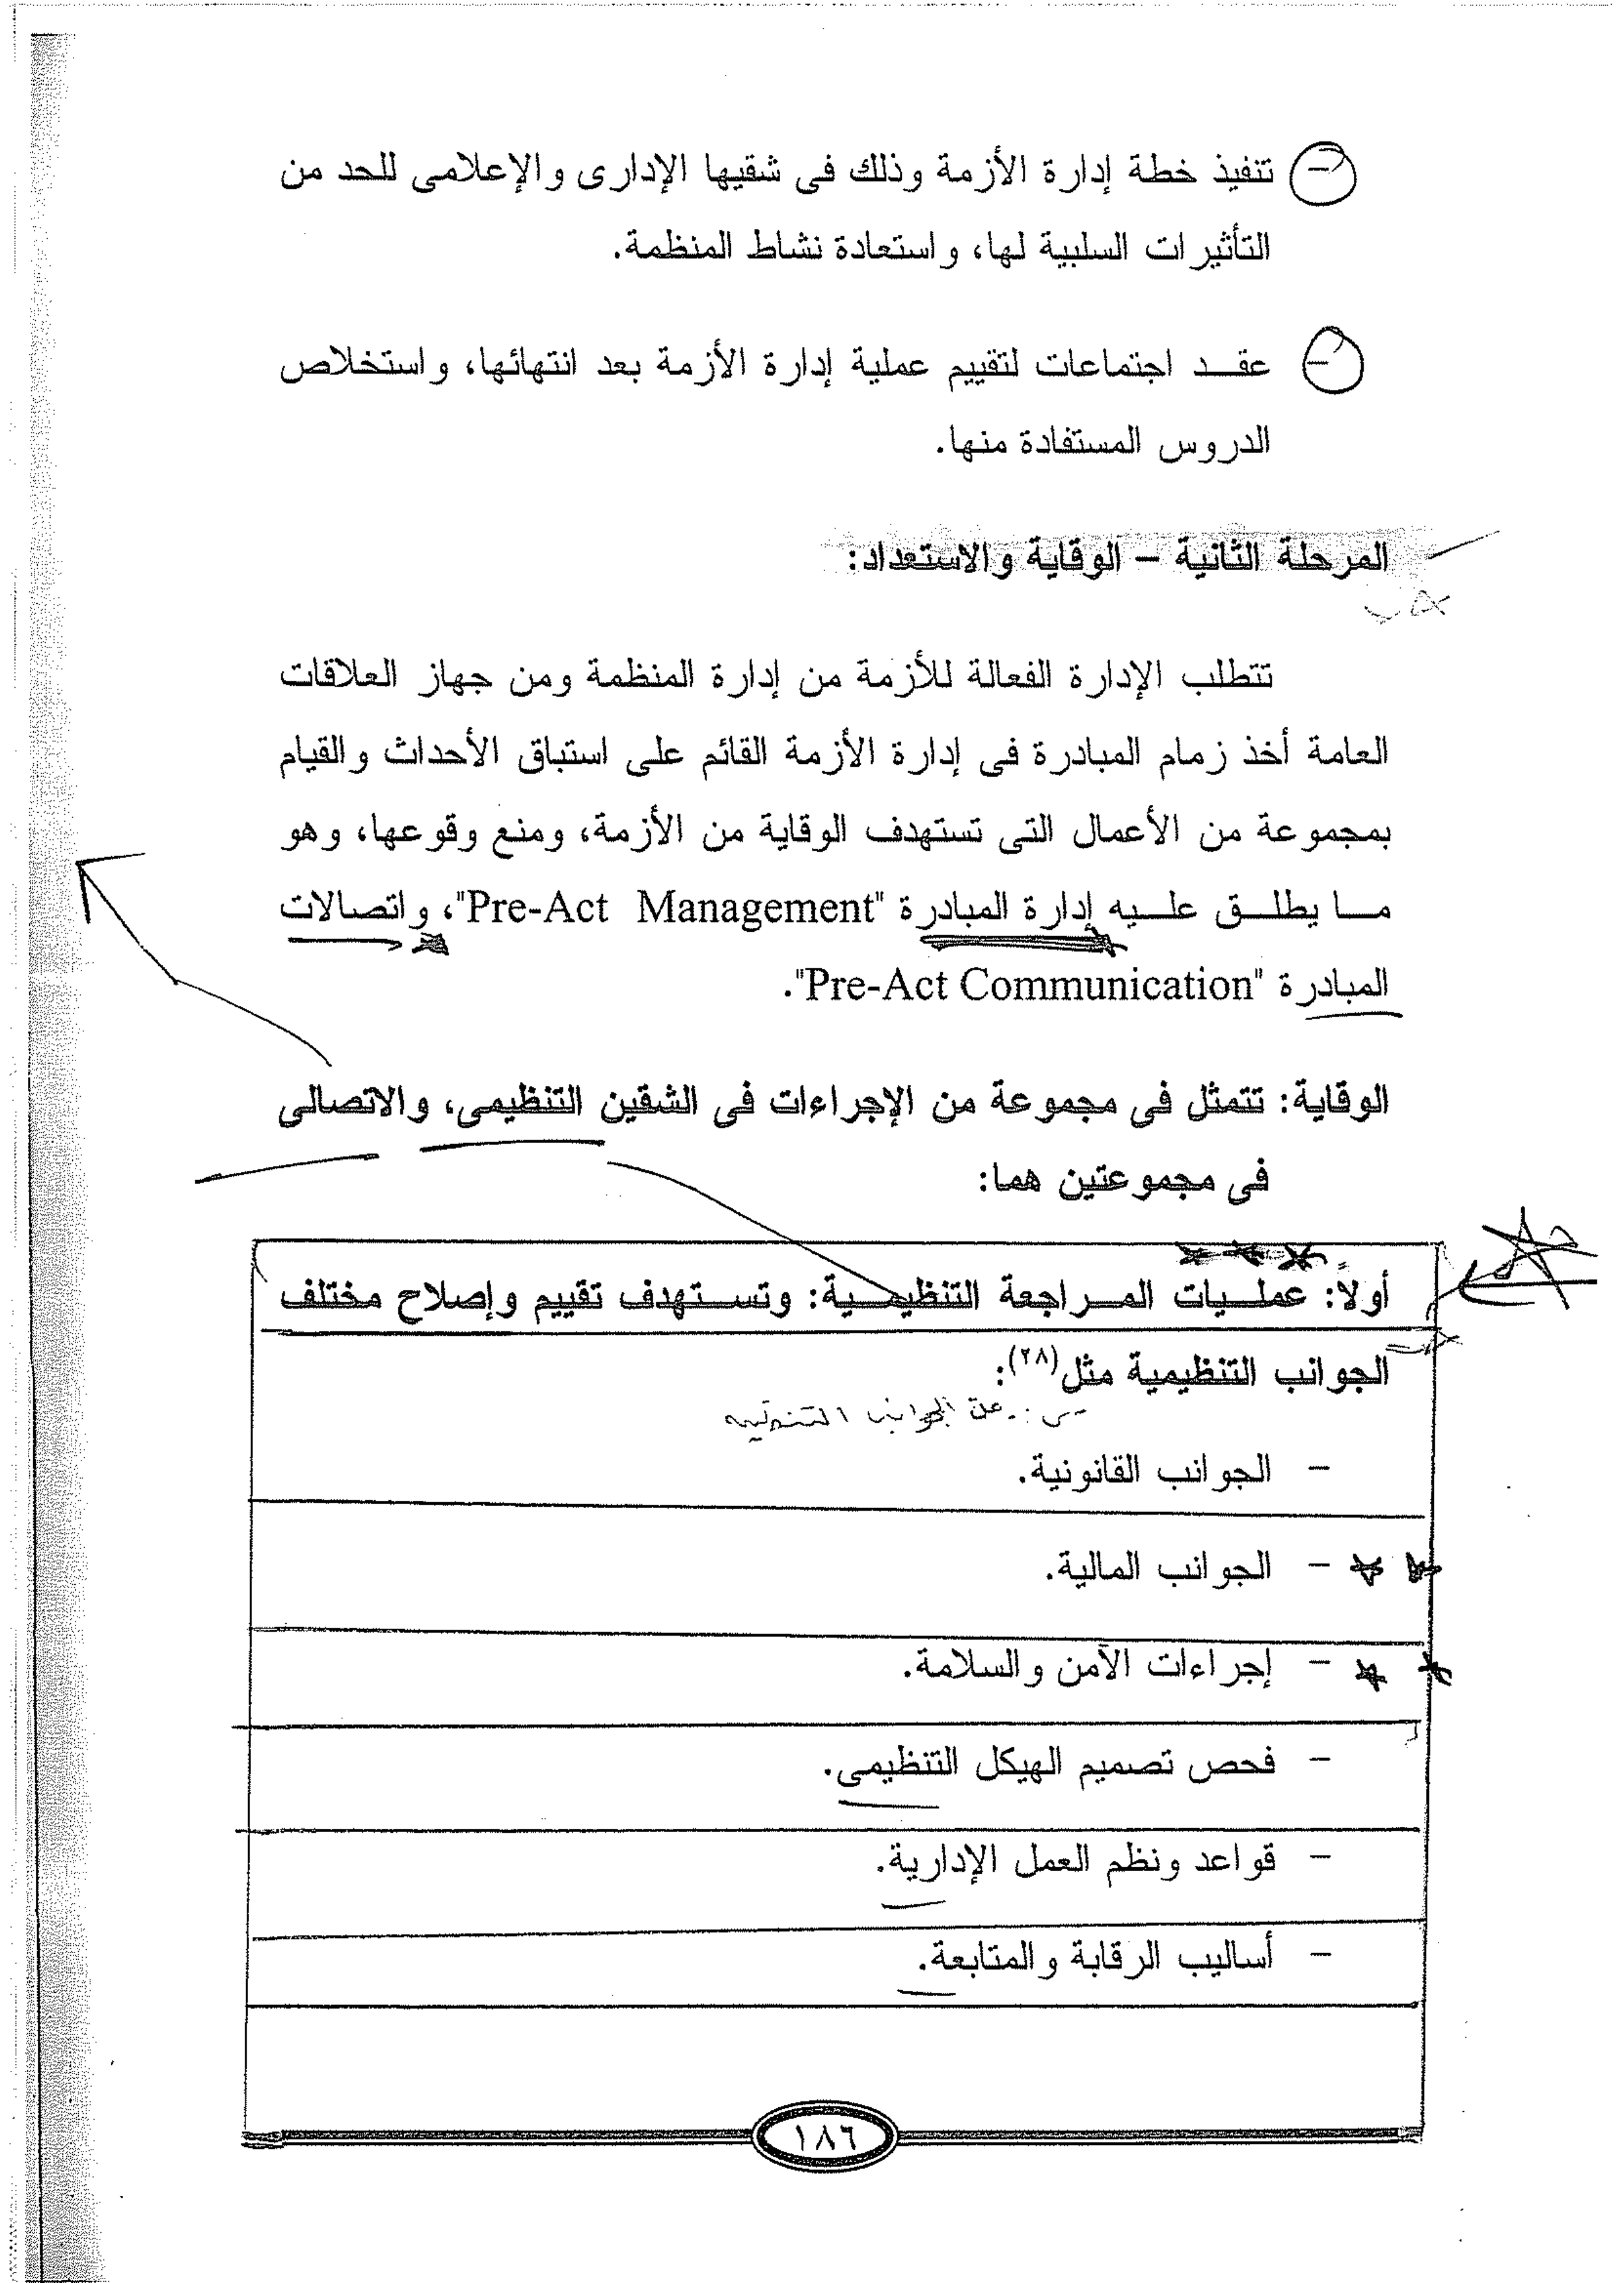 - تنفيذ خطة إدارة الأزمة وذلك فى شقيها الإدارى والإعلامى للحد من
التأثيرات السلبية لها، واستعادة نشاط المنظمة.
- عقد اجتماعات لتقييم عملية إدارة الأزمة بعد انتهائها، واستخلاص
الدروس المستفادة منها.
المرحلة الثانية – الوقاية والاستعداد:
تتطلب الإدارة الفعالة للأزمة من إدارة المنظمة ومن جهاز العلاقات
العامة أخذ زمام المبادرة فى إدارة الأزمة القائم على استباق الأحداث والقيام
بمجموعة من الأعمال التى تستهدف الوقاية من الأزمة، ومنع وقوعها، وهو
ما يطلق عليه إدارة المبادرة "Pre-Act Management"، واتصالات
المبادرة "Pre-Act Communication".
الوقاية: تتمثل فى مجموعة من الإجراءات فى الشقين التنظيمى، والاتصالى
فى مجموعتين هما:
أولا: عمليات المراجعة التنظيمية: وتستهدف تقييم وإصلاح مختلف
الجوانب التنظيمية مثل(٢٨):
الجوانب
- الجوانب القانونية.
- الجوانب المالية.
- إجراءات الأمن والسلامة.
- فحص تصميم الهيكل التنظيمى.
- قواعد ونظم العمل الإدارية.
- أساليب الرقابة والمتابعة.
١٨٦